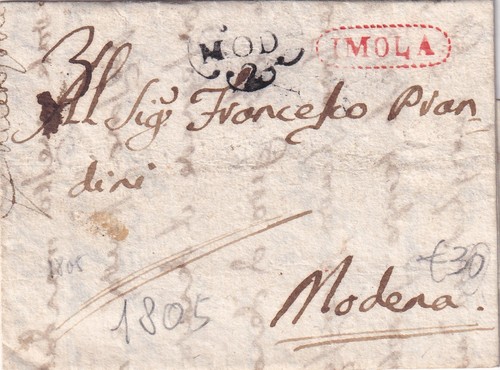 3
MOD.
IMOLA
All Sig.r Francesco Pran-
dini
1805
€30
1805
Modena.